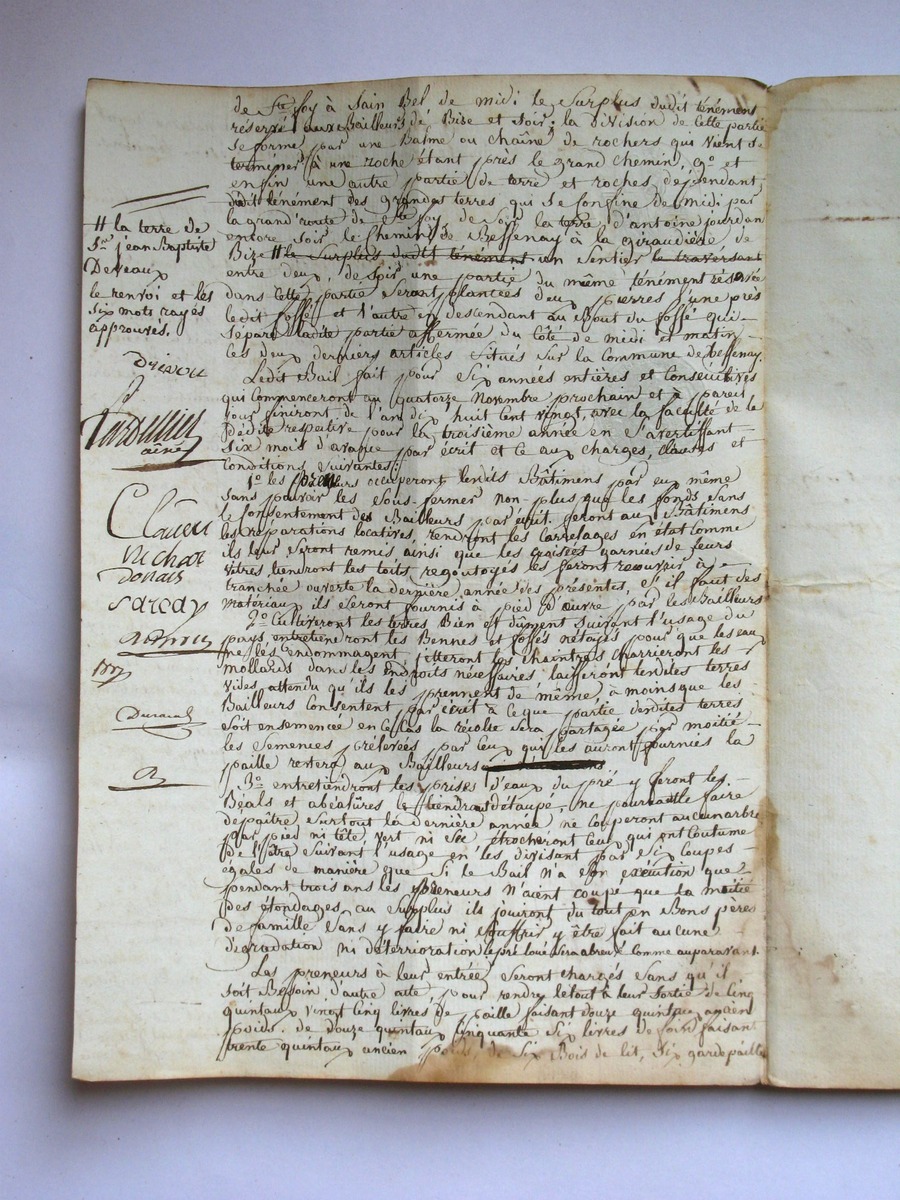 de Ste foy à Sain Bel de midi le Surplus dudit ténément
réservé aux Bailleurs de Bise et soir; la division de cette partie
se forme par une Balme ou chaîne de rochers qui vient se
terminer à une roche étant près le grand chemin, 9o et
enfin une autre partie de terre et roches dépendant
dudit tenément des grandes terres qui se confine de midi par
la grand'route de Ste foy, de Soir la terre d'antoine jourdan
encore Soir le Chemin de Bessenay à la giraudière, de
Bize # le Surplus dudit ténément un Sentier le traversant
entre deux, de soir une partie du même ténément réservée
dans cette partie Seront plantées deux pierres l'une près
ledit fossé et l'autre en descendant au Bout du fossé qui
Sépare ladite partie affermée du côté de midi et matin
Ces deux derniers articles Situés Sur la Commune de Bessenay.
Ledit Bail fait pour Six années entières et Consécutives
qui Commenceront au quatorze Novembre prochain et à pareil
jour finiront de l'an dix huit Cent vingt, avec la faculté de se
Dédite respective pour la troisième année en S'avertissant
Six mois d'avance par écrit et Ce aux charges, Clauses et
Conditions Suivantes:
1o les preneurs occuperont lesdits Bâtimens par eux même
Sans pouvoir les Sous-fermer non-plus que les fonds Sans
le Consentement des Bailleurs par écrit. feront aux Bâtimens
les réparations locatives, rendront les Carrelages en état Comme
ils leur Seront remis ainsi que les croisées garnies de leurs
vitres, tiendront les toits regoutoyés les feront recouvrir à
tranchée ouverte la dernière année des présentes, S'il faut des
materiaux ils Seront fournis à pied d'œuvre par les Bailleurs
2o Cultiveront les terres Bien et dûment Suivant l'usage du
pays, entretiendront les Bennes et fossés pour que les eaux
ne les endommagent, jetteront les Chaintres Charrieront les
mollards dans les endroits nécessaires laisseront lesdites terres
vides attendu qu'ils les prennent de même, à moins que les
Bailleurs Consentent par écrit à Ce que partie desdites terres
Soit ensemencée en Ce Cas la récolte Sera partagée par moitié
les Semences prélevées par Ceux qui les auront fournies la
paille restera aux Bailleurs
3o entretiendront les prises d'eaux du pré y feront les
Béals et abéatures le tiendront détaupé, ne pourront le faire
dépaître Surtout la dernière année ne Couperont aucun arbre
par pied ni tête, vert ni Sec étrocheront Ceux qui ont Coutume
de l'être Suivant l'usage en les divisant par Six Coupes
égales de manière que Si le Bail n'a Son exécution que
pendant trois ans les preneurs N'aient Coupé que la moitié
des étondages, au Surplus ils jouiront du tout en Bons pères
de famille Sans y faire ni Souffrir y être fait aucune
dégradation ni déterrioration le pré loué Sera abreuvé Comme auparavant
Les preneurs à leur entrée Seront chargés Sans qu'il
Soit Besoin d'autre acte, pour rendre le tout à leur Sortie de Cinq
quintaux vingt Cinq livres de paille faisant douze quintaux ancien
poids. de douze quintaux Cinquante Six livres de foin faisant
trente quintaux ancien poids, de Six Bois de lit, Six gardepaille
# la terre de
Sr jean Baptiste
Deveaux
le renvoi et les
Six mots rayés
approuvés.
aîné